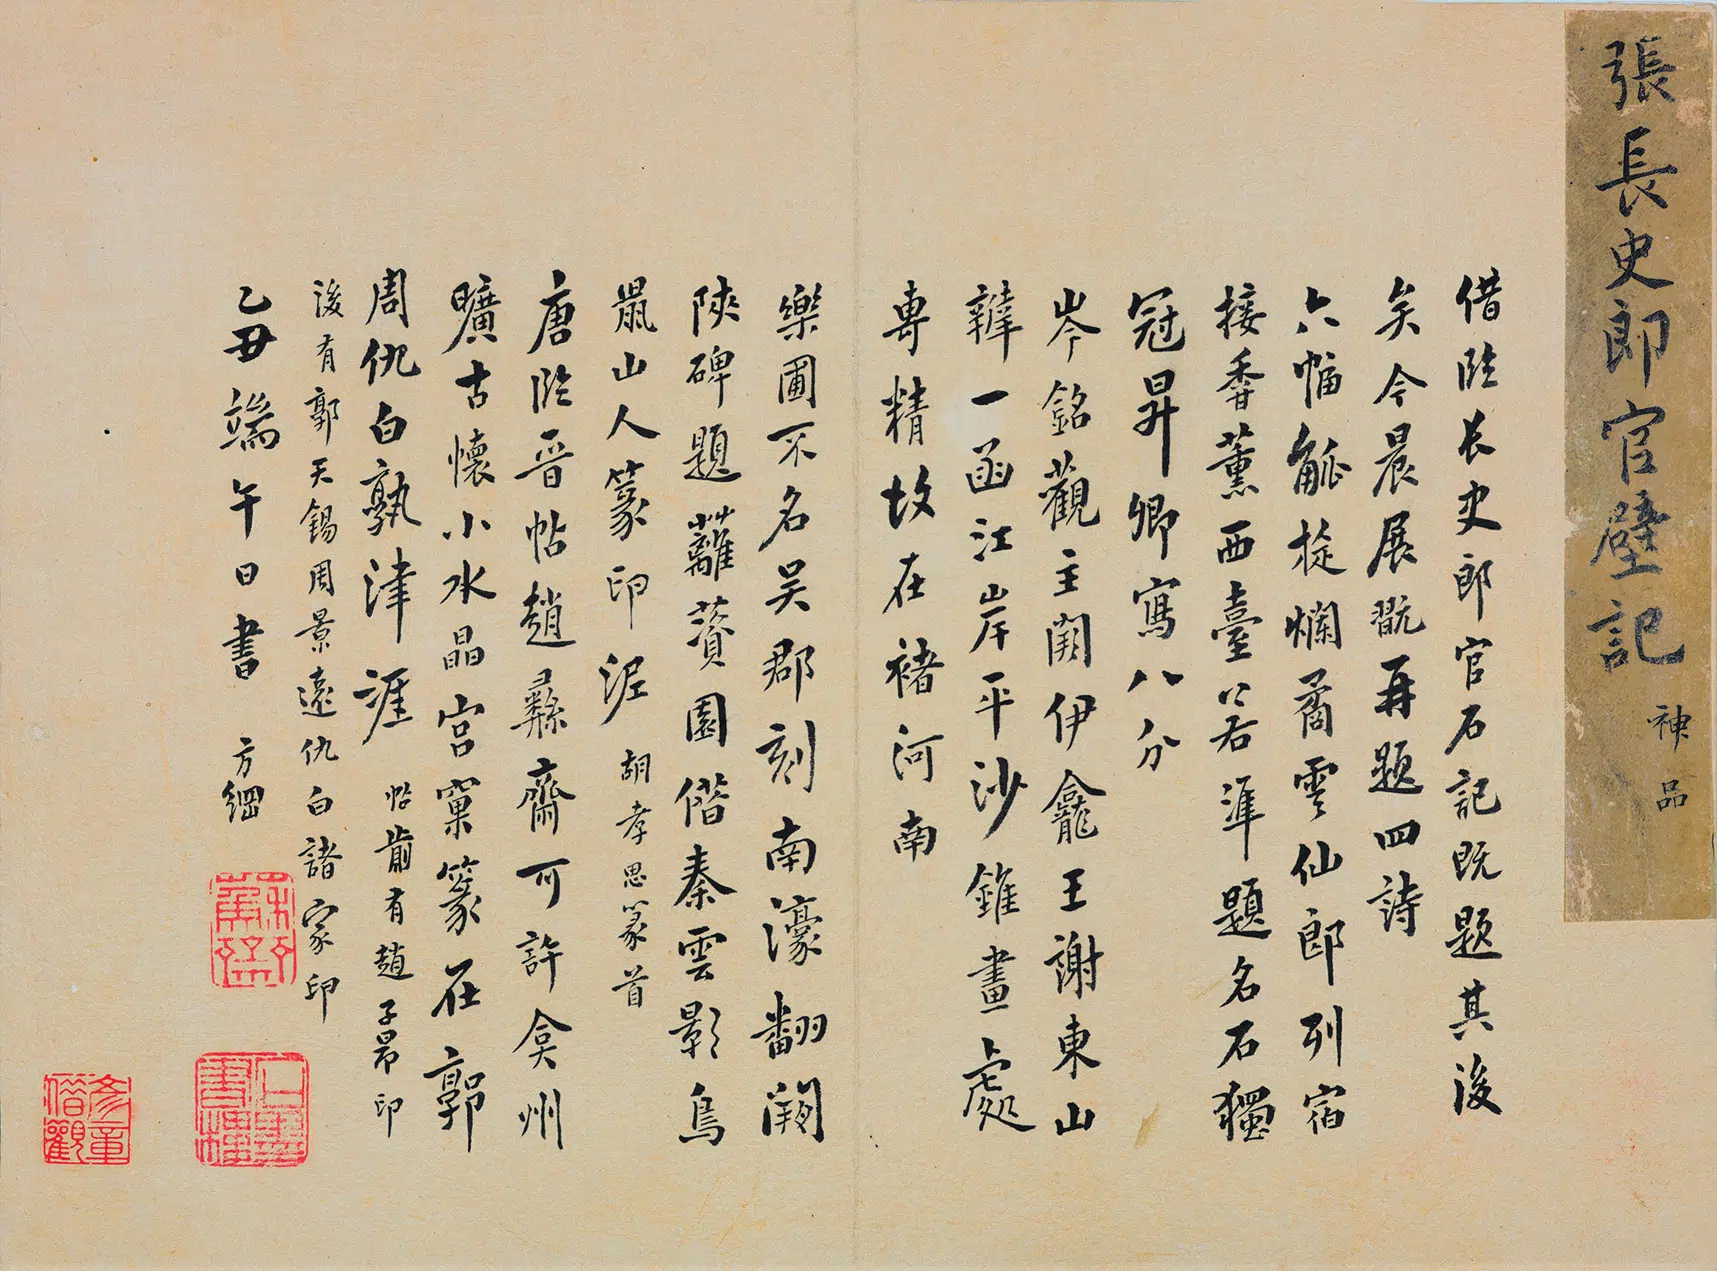 張長史郎官壁記
神品
借臨長史郎官石記既題其後
矣今晨展翫再題四詩
六幅觚棱爛矞雲仙郎列宿
接香薰西臺若準題名石獨
冠昇卿寫八分
岑銘觀主闕伊龕王謝東山
韡一函江岸平沙錐畫處
專精故在褚河南
樂圃不名吳郡刻南濠翻闕
陝碑題蘿薋園偕秦雲影烏
鼠山人篆印泥 胡孝思篆首
唐臨晉帖趙彝齋可許弇州
曠古懷小水晶宮窠篆在郭
周仇白孰津涯 帖前有趙子昂印
後有郭天錫周景遠仇白諸家印
乙丑端午日書 方綱